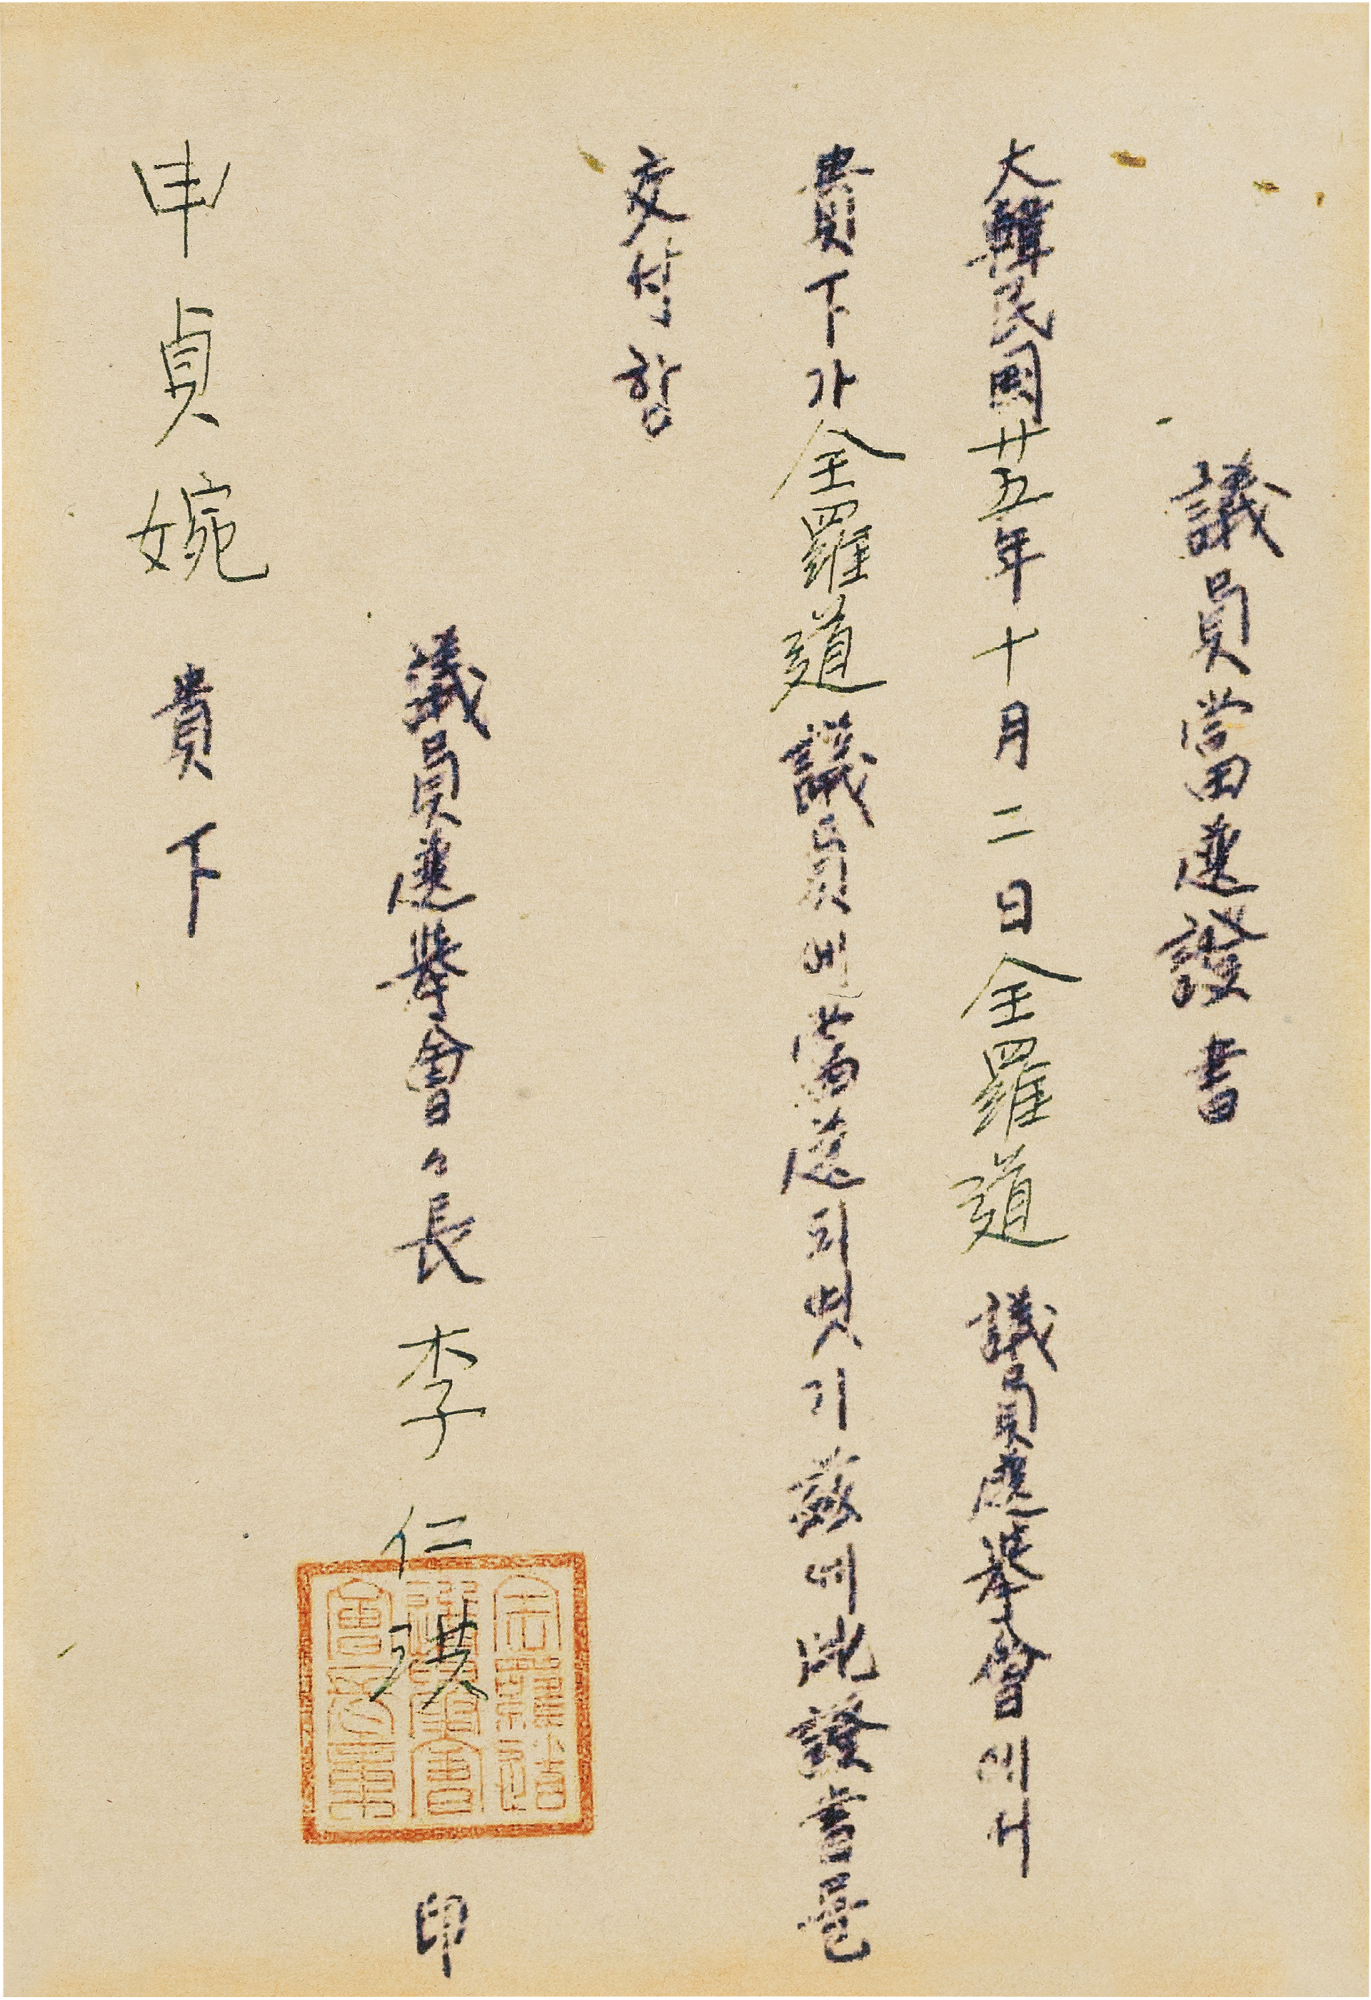 議員當選證書
大韓民國廿五年十月二日全羅道議員選擧會에서
貴下가全羅道議員에當選되엿기玆에此證書를
交付함
議員選擧會々長 李仁洪 印
全羅道
選擧會
會長章
申貞婉 貴下